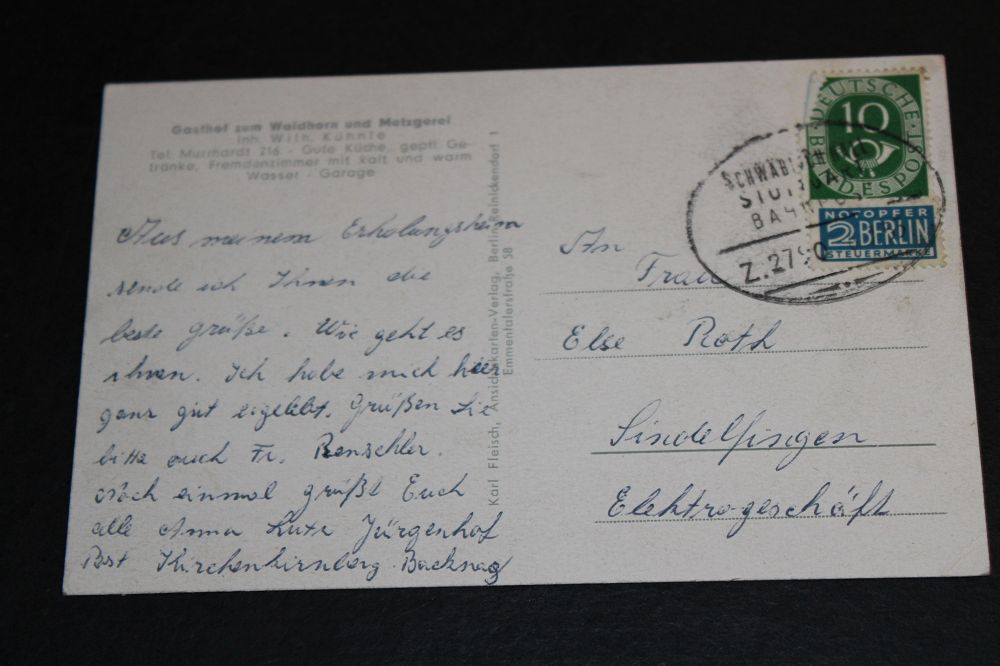 Gasthof zum Waldhorn und Metzgerei
Inh. Wilh. Kühnle
Tel. Murrhardt 216 - Gute Küche, gepfl. Ge-
tränke, Fremdenzimmer mit kalt und warm
Wasser - Garage
Aus meinem Erholungsheim
sende ich Ihnen die
beste Grüße. Wie geht es
ihnen. Ich habe mich hier
ganz gut eigelebt. Grüßen Sie
bitte auch Fr. Renschler.
Noch einmal grüßt Euch
alle Anna Lutz Jürgenhof
Post Kirchenkirnberg Backnag
Karl Fleisch, Ansichtskarten-Verlag, Berlin-Reinickendorf 1
Emmentalerstraße 58
DEUTSCHE
BUNDESPOST
10
NOTOPFER
2 BERLIN
STEUERMARKE
STUTTGART
BAHNPOST
Z.2790
An
Frau
Else Roth
Sindelfingen
Elektrogeschäft